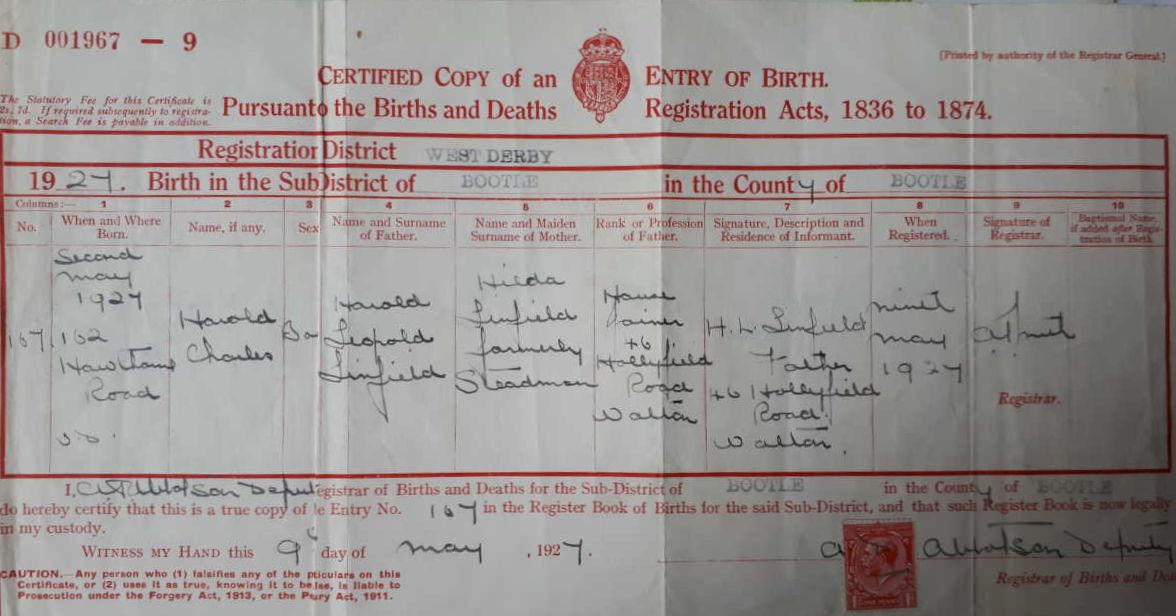 D 001967 — 9
[Printed by authority of the Registrar General.]
CERTIFIED COPY of an ENTRY OF BIRTH.
The Statutory Fee for this Certificate is
2s. 7d. If required subsequently to registra-
tion, a Search Fee is payable in addition.
Pursuant to the Births and Deaths Registration Acts, 1836 to 1874.
Registration District WEST DERBY
1927. Birth in the Sub District of BOOTLE in the County of BOOTLE
Columns:— 1 2 3 4 5 6 7 8 9 10
No. When and Where Born. Name, if any. Sex Name and Surname of Father. Name and Maiden Surname of Mother. Rank or Profession of Father. Signature, Description and Residence of Informant. When Registered. Signature of Registrar. Baptismal Name, if added after Regis- tration of Birth.
167
Second
May
1927
162
Road
Harold
Charles
Harold
Leopold
Linfield
Hilda
Linfield
formerly
Steadman
House
46
Hollyfield
Road
Walton
H. L. Linfield
Father
46 Hollyfield
Road
Walton.
May
1927
Registrar.
I, Deput egistrar of Births and Deaths for the Sub-District of BOOTLE in the County of BOOTLE
do hereby certify that this is a true copy of e Entry No. 167 in the Register Book of Births for the said Sub-District, and that such Register Book is now legally
in my custody.
WITNESS MY HAND this 9 day of May , 1927.
Deputy
Registrar of Births and Dea
CAUTION.—Any person who (1) falsifies any of the pticulars on this
Certificate, or (2) uses it as true, knowing it to be lse, is liable to
Prosecution under the Forgery Act, 1913, or the Pury Act, 1911.